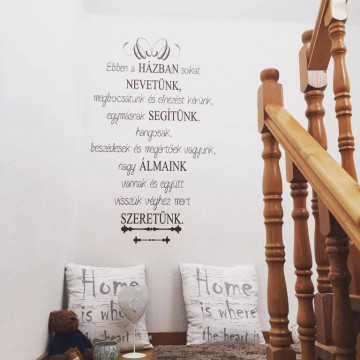 Ebben a HÁZBAN sokat
NEVETÜNK,
megbocsátunk és elnézést kérünk,
egymásnak SEGÍTÜNK.
hangosak,
beszédesek és megértőek vagyunk,
nagy ÁLMAINK
vannak és együtt
visszük véghez mert
SZERETÜNK.
Home
is where
the heart is
Home
is where
the heart is